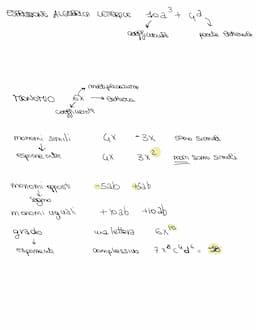 ESPRESSIONE ALGEBRICA LETTERALE 10a³ + 4a²
coefficiente parte letterale
moltiplicazione
MONOMIO 6x → lettera
coefficiente
monomi simili 4x -3x sono simili
esponente 4x 3x² non sono simili
monomi opposti -5ab +5ab
segno
monomi uguali +10ab +10ab
grado una lettera
esponenti complessivo